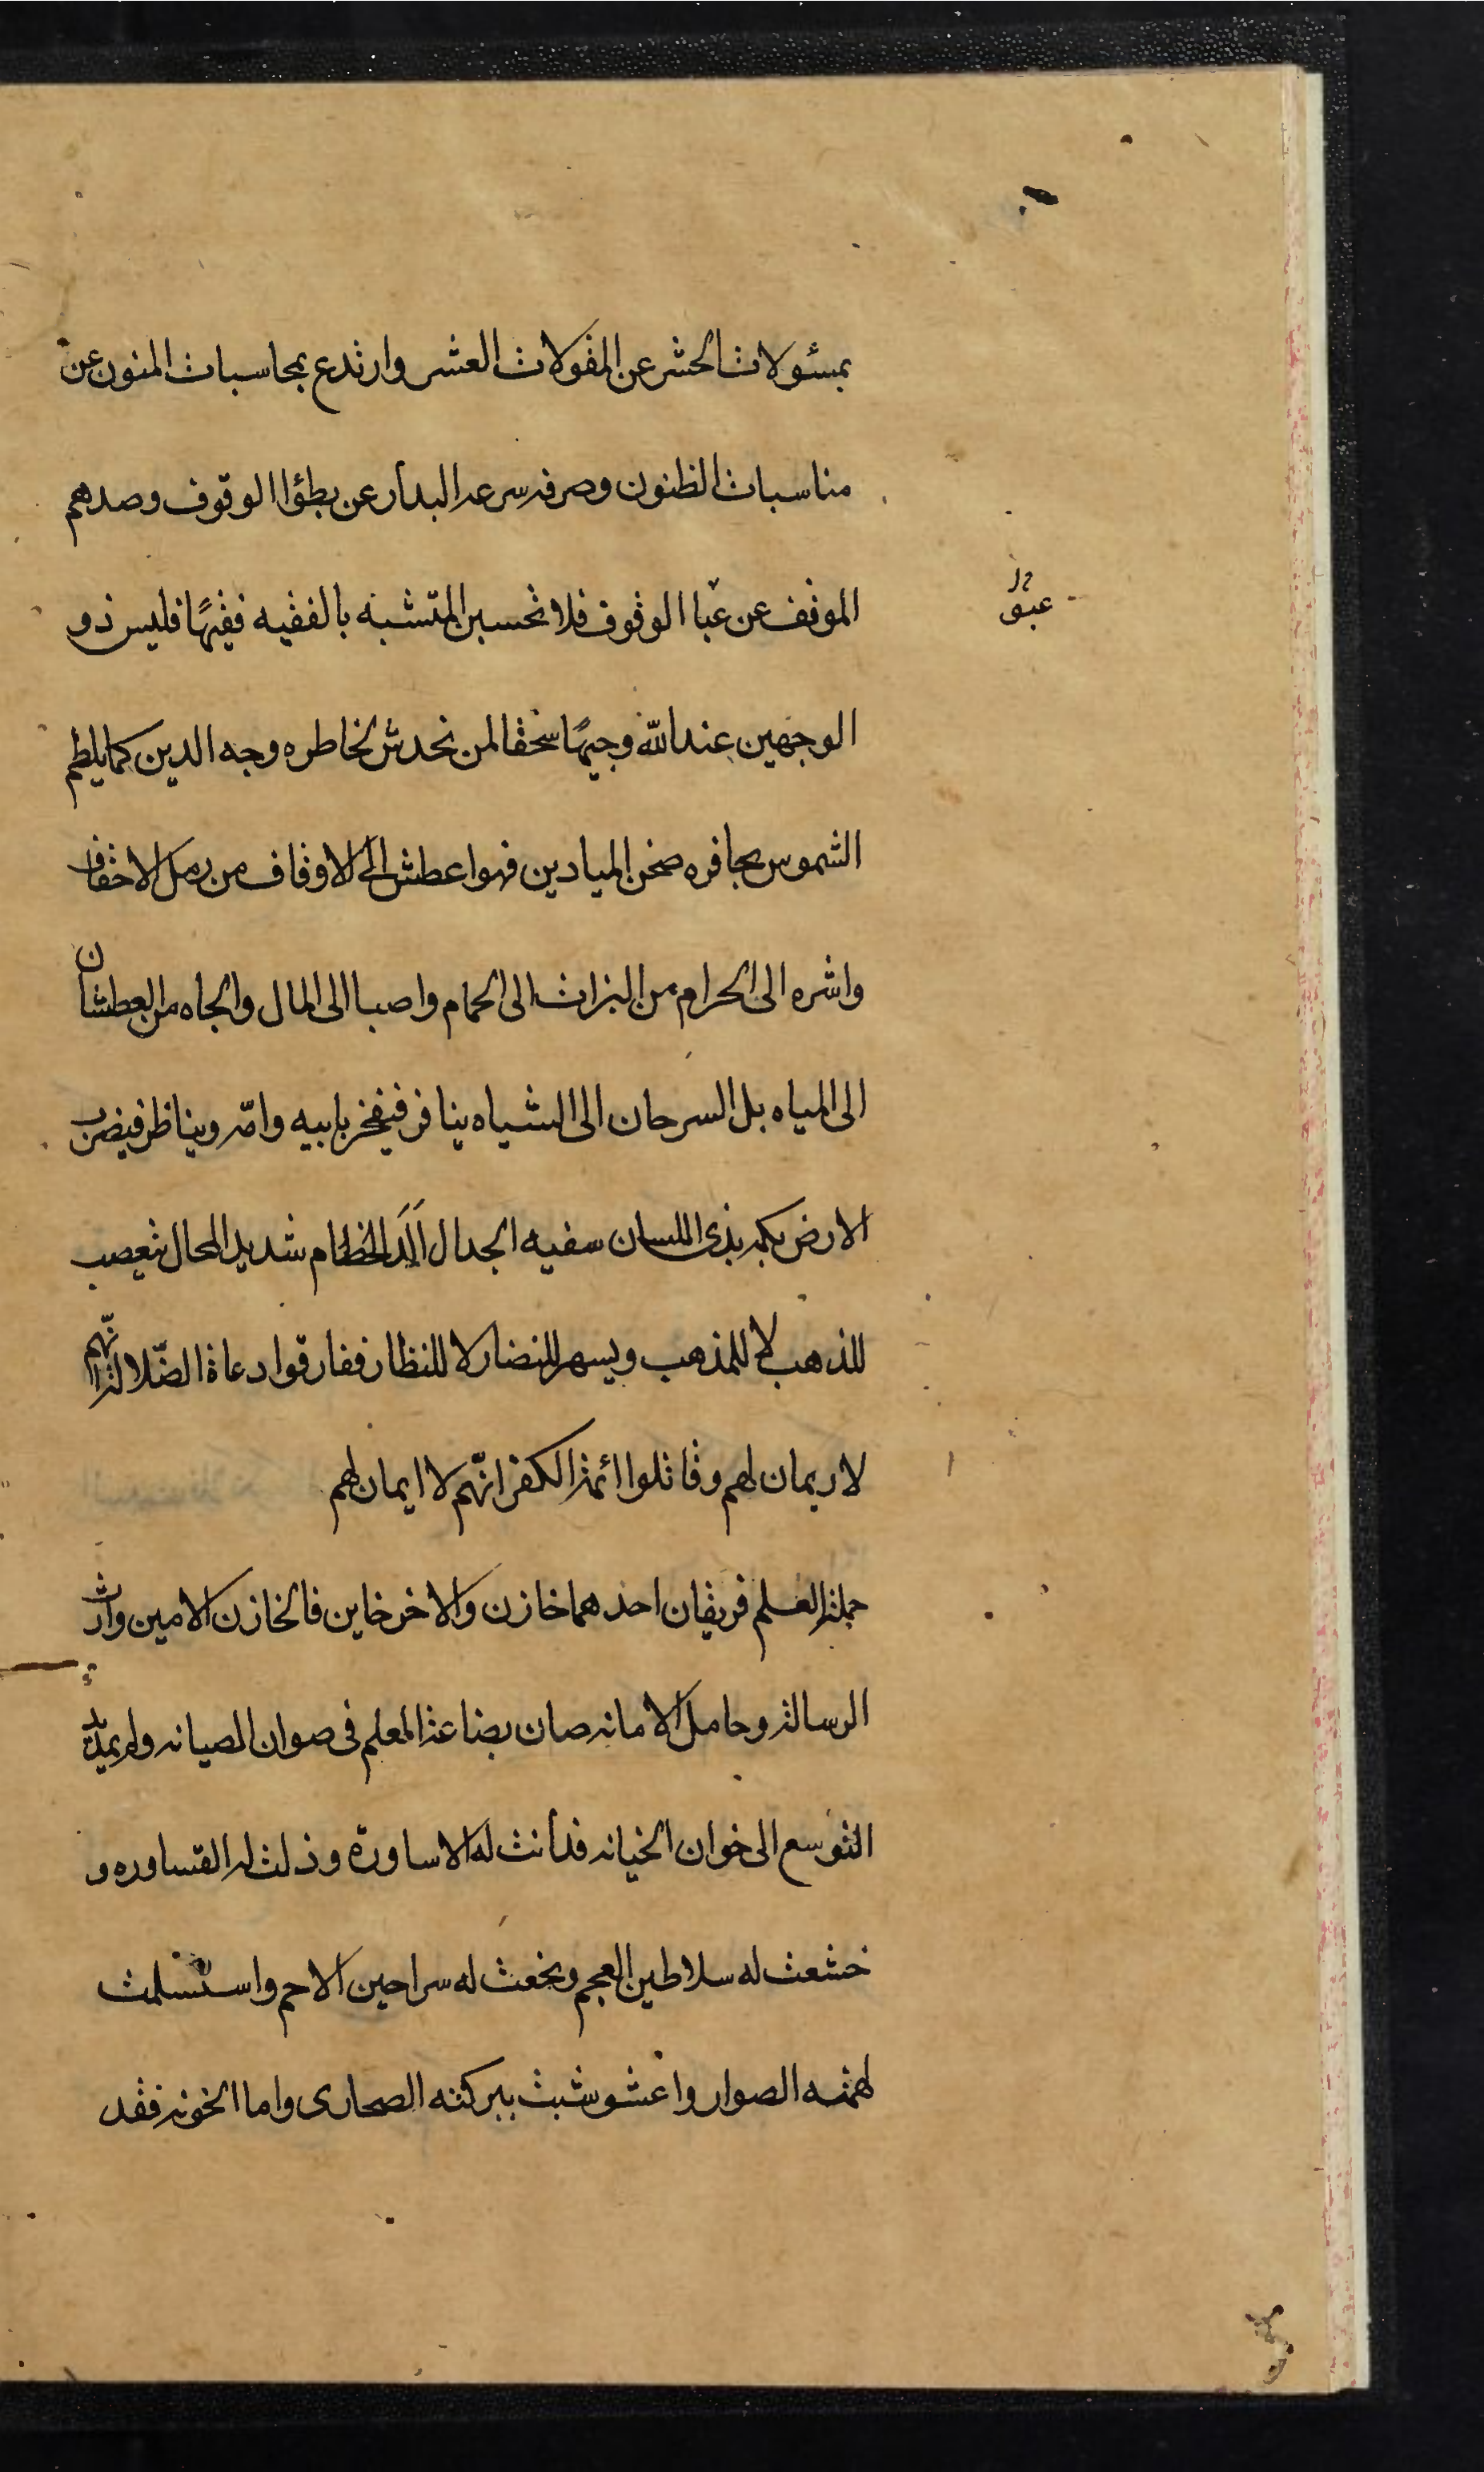 بمسئولات الحشر عن المقولات العشر وارتدع بمحاسبات المنون عن
مناسبات الظنون وصرفه سرعه البدار عن بطؤ الوقوف وصدهم
الموقف عن عبا الوقوف فلا تحسبن المتشبه بالفقيه فقيهًا فليس ذو
عبق
الوجهين عند الله وجيهًا سحقا لمن يخدش بخاطره وجه الدين كما يلطم
الشموس بحافره صخن الميادين فهو اعطش الى الاوقاف من رمل الاحقاف
واشره الى الحرام من البزاث الى الحمام واصبا الى المال والجاه من العطشان
الى المياه بل السرحان الى الشياه ينافر فيفخر بابيه وامّه ويناظر فيضرب
الارض بكمه بذى اللسان سفيه الجدال اَلَدّ الخصام شديد المحال يتعصب
للذهب لا للمذهب ويسهر للنضار لا للنظار ففارقوا دعاة الضّلالة انّهم
لا ريمان لهم وقاتلوا ائمة الكفر انّهم لا ايمان لهم
حملة العلم فريقان احدهما خازن والاخر خاين فالخازن الامين وارث
الرسالة وحامل الامانه صان بضاعة المعلم فى صوان الصيانه ولم يمدّ يد
التوسع الى خوان الخيانه فدانت له الاساورة وذلت له القساوره و
خشعت له سلاطين العجم وبخعت له سراحين الاجم واستسلمت
لهمته الصوار واعشوشبت ببركته الصحارى واما الخونه فقد